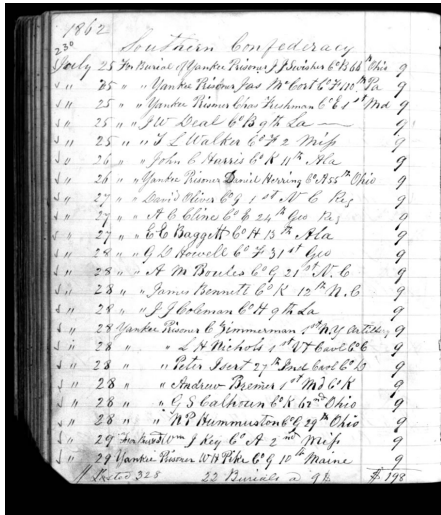 1862
230
Southern Confederacy
July 25 For Burial of Yankee Prisoner J J Swisher Co B 66th Ohio 9
" 25 " " Yankee Prisoner Jas McCort Co F 110th Pa 9
" 25 " " Yankee Prisner Chas Freshman Co E 1st Md 9
" 25 " " J W Deal Co B 9th La 9
" 25 " " T L Walker Co F 2 Miss 9
" 26 " " John C Harris Co K 11th Ala 9
" 26 " " Yankee Prisoner Daniel Herring Co A 55th Ohio 9
" 27 " " David Oliver Co G 1st N C Reg 9
" 27 " " A C Cline Co E 24th Geo Reg 9
" 27 " " E C Baggett Co H 13th Ala 9
" 28 " " G D Howell Co F 31st Geo 9
" 28 " " A M Bowles Co G 21st N. C 9
" 28 " " James Bennett Co K 12th N. C 9
" 28 " " J J Coleman Co H 9th La 9
" 28 Yankee Prisoner C Zimmerman 1st N. Y Artillery 9
" 28 " " L H Nichols 1st Vt Cavl Co C 9
" 28 " " Peter Isert 27th Ind Cavl Co D 9
" 28 " " Andrew Bremer 1st Md Co K 9
" 28 " " G S Calhoun Co K 62nd Ohio 9
" 28 " " N P Hummerston Co G 29th Ohio 9
" 29 Wm J Key Co A 2nd Miss 9
" 29 Yankee Prisoner W H Pike Co G 10th Maine 9
Posted 328 22 Burials a 9$ $198